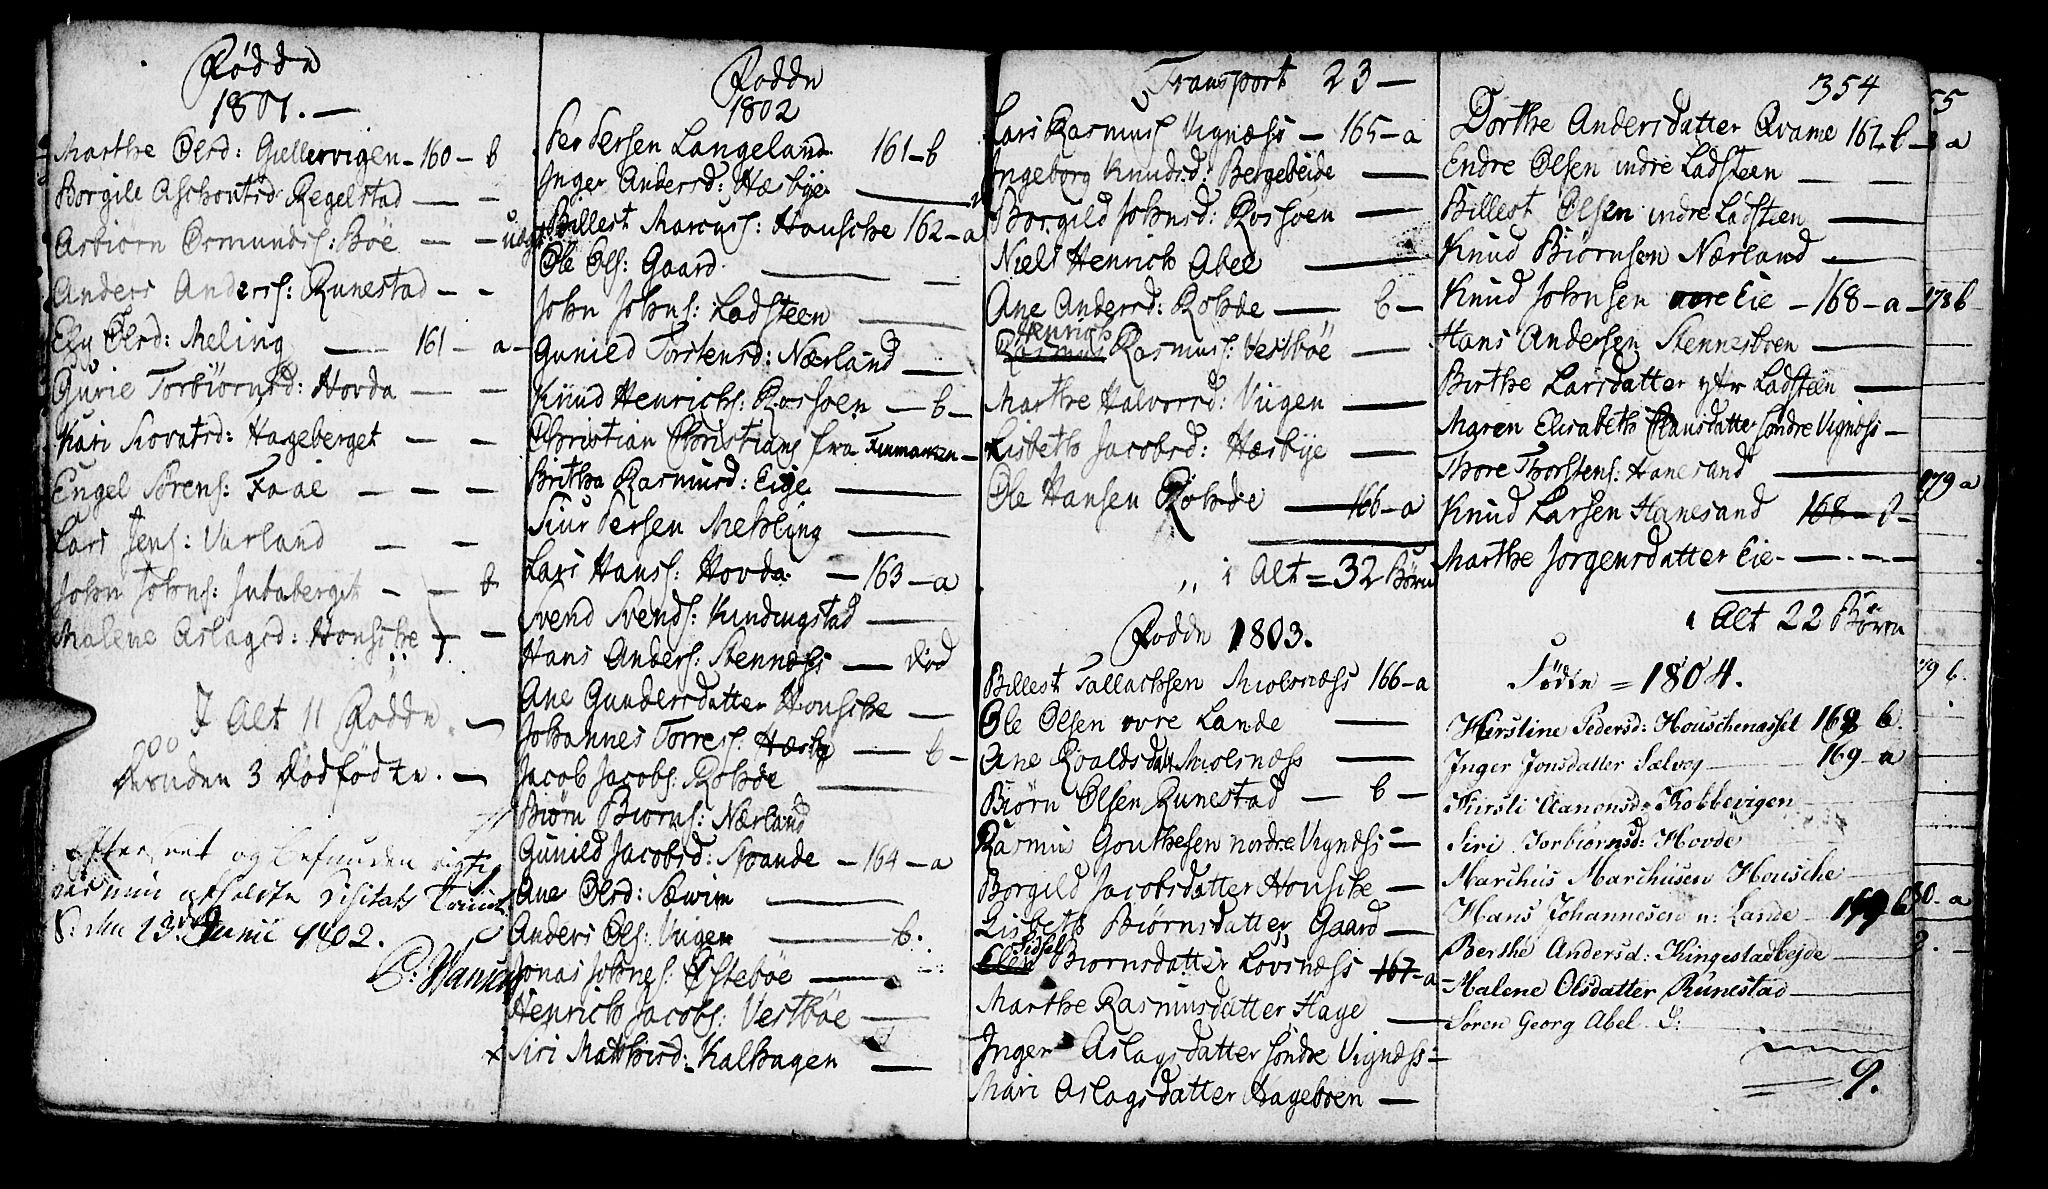 Fødde
1801. —
Marthe Olsd: Gjellervigen - 160 - b
Borgild Aschoutsd: Regelstad — —
Asbiørn Osmunds: Bøe — —
Anders Anders: Runestad — —
Ely Olsd: Meling — 161 - a -
Gurie Torbiørnsd: Hovda — —
Kari Siovatsd: Hageberget — —
Engel Sørens: Faae — — —
Lars Jens: Varland — —
John Johns: Judaberget — — b
Malene Aslagsd: Housche —
I Alt 11 Fødde
Desuden 3 Dødfødte. —
Efterseet og befunden rigtig
ved min afholdte Visitats
d. 13de Junii 1802.
P: Hansen
Fødde
1802
Per Persen Langeland 161 - b
Inger Andersd: Hæbye —
Billest Marcuss: Housche 162 - a
Ole Ols: Gaard — —
John Johns: Ladsteen —
Gunild Torstensd: Nærland —
Knud Henrichs: Rossoen — b —
Christian Christians fra Finmarken —
Britha Rasmusd: Eige —
Siur Persen Mehling —
Lars Hans: Hovda — 163 - a
Svend Svends: Kindingstad —
Hans Anders: Stennæss — død
Ane Gundersdatter Housche —
Johannes Torres: Hæbye — b —
Jacob Jacobs: Rohde —
Biørn Biørns: Nærland
Gunild Jacobsd: Spande - 164 - a
Ane Olsd: Sæwim —
Anders Ols: Viigen — b.
Jonas Johnes: Østebøe —
Henrich Jacobs: Vestbøe —
x Siri Matthisd: Kalhagen —
Transport 23 —
Lars Rasmus: Vignæss — 165 - a
Ingeborg Knudsd: Bergebeide —
Borgild Johnsd: Rossoen —
Niels Henrich Abel —
Ane Andersd: Rohde — b —
Henrich
Rasmus Rasmus: Vestbøe —
Marthe Halvorsd: Viigen —
Lisbeth Jacobsd: Hæbye —
Ole Hansen Rohde — 166 - a
i Alt = 32 Børn
Fødde 1803.
Billest Tallachsen Molsnæss 166 - a
Ole Olsen øvre Lande —
Ane Roaldsdatt Molsnæss —
Biørn Olsen Runestad — b —
Rasmus Gouthesen nordre Vignæss —
Borgild Jacobsdatter Housche —
Lisbeth Biørnsdatter Gaard —
Sidsel
Elen Biørnsdatter Løvsnæss 167 - a
Marthe Rasmusdatter Hage —
Inger Aslagsdatter søndre Vignæss —
Mari Aslagsdatter Hageboen —
354
Dorthe Andersdatter Qvame 167 - b
Endre Olsen indre Ladsteen — —
Billest Olsen indre Ladsteen —
Knud Biørnsen Nærland —
Knud Johnsen øvre Eie - 168 - a
Hans Andersen Stennesboen —
Birthe Larsdatter ytr Ladsteen —
Maren Elisabeth Clausdatter søndre Vignæss —
Thore Thorstens: Hanesand —
Knud Larsen Hanesand 168 - b -
Marthe Jørgensdatter Eie - —
i Alt 22 Børn
Fødte = 1804.
Kirstine Pedersd: Houschenasset 168 b.
Inger Jonsdatter Sælvog — 169 - a
Kirsti Aanonsd: Kobbevigen —
Siri Torbiørnsd: Hovde
Marchus Marchusen Housche —
Hans Johannesen n: Lande - 169 b
Berthe Andersd: Kingestadbejde —
Malene Olsdatter Runestad —
Søren Georg Abel
9.
55
a
173 b
179 a
79 b.
80 - a